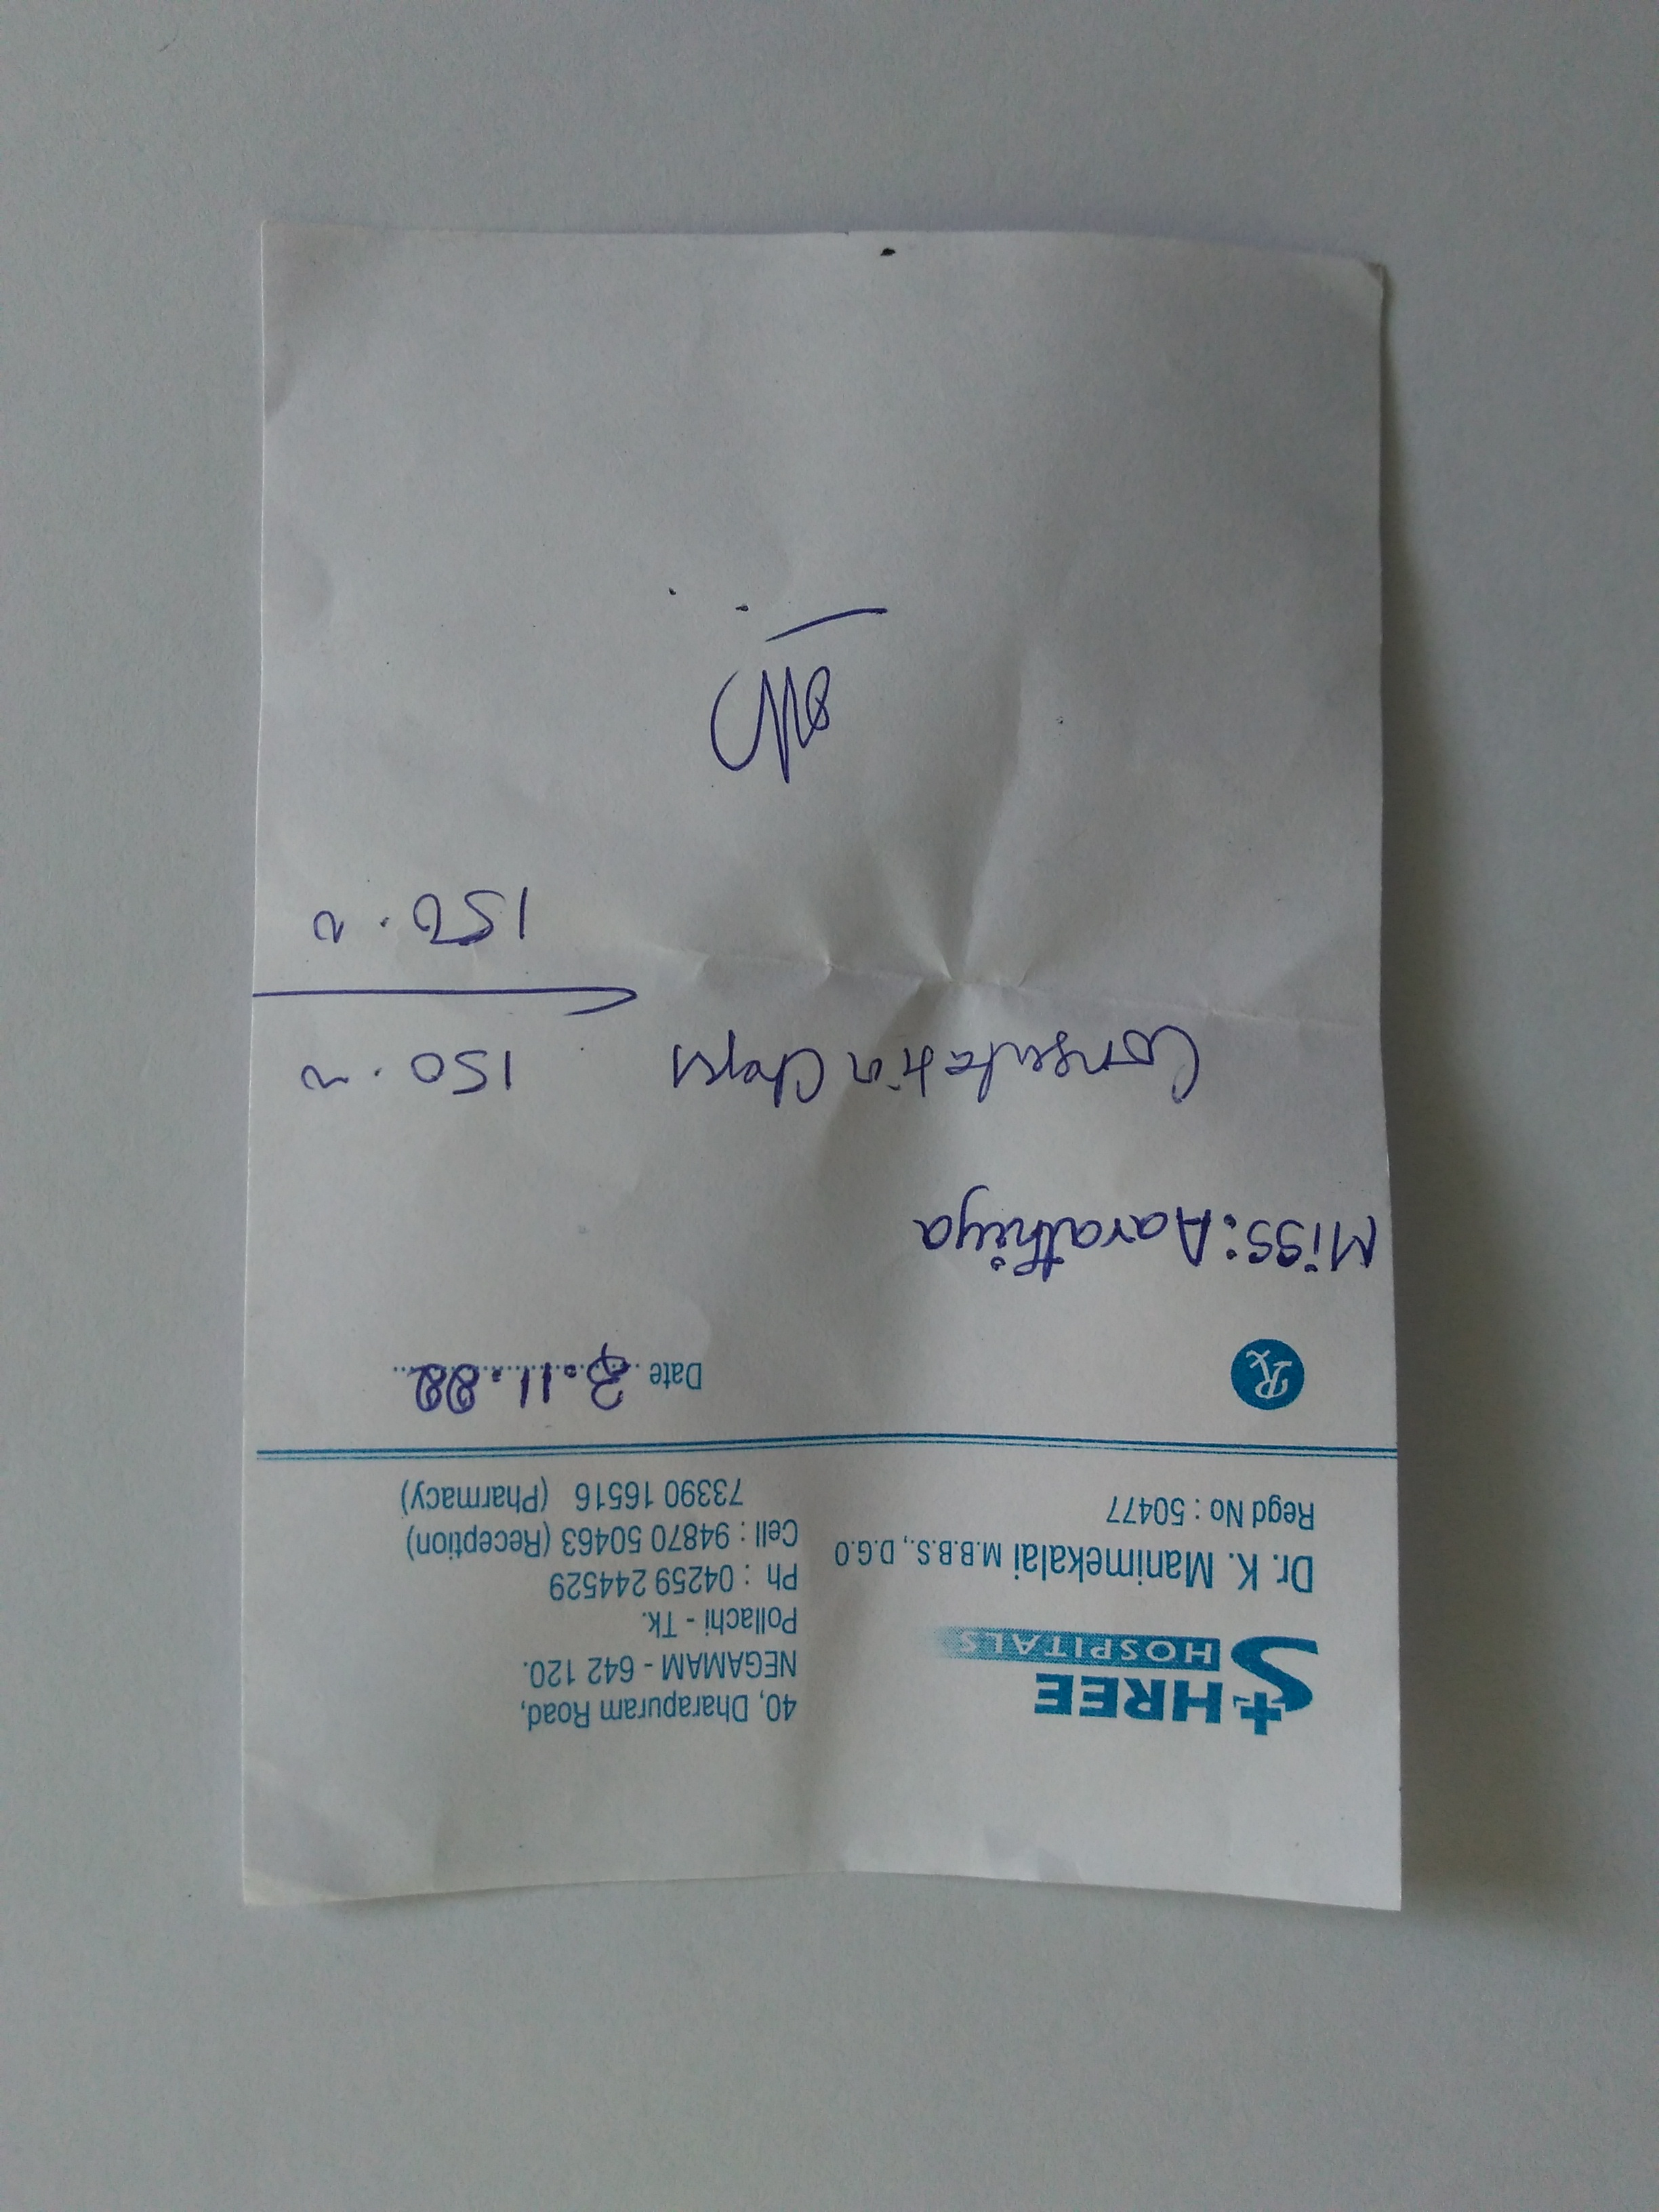 SHREE
HOSPITALS
Dr. K. Manimekalai M.B.B.S., D.G.O
Regd No : 50477
40, Dharapuram Road,
NEGAMAM - 642 120.
Pollachi - Tk.
Ph : 04259 244529
Cell : 94870 50463 (Reception)
73390 16516 (Pharmacy)
Rx
Date 3.11.22
Miss: Aarathiya
Consultation 150.
150.